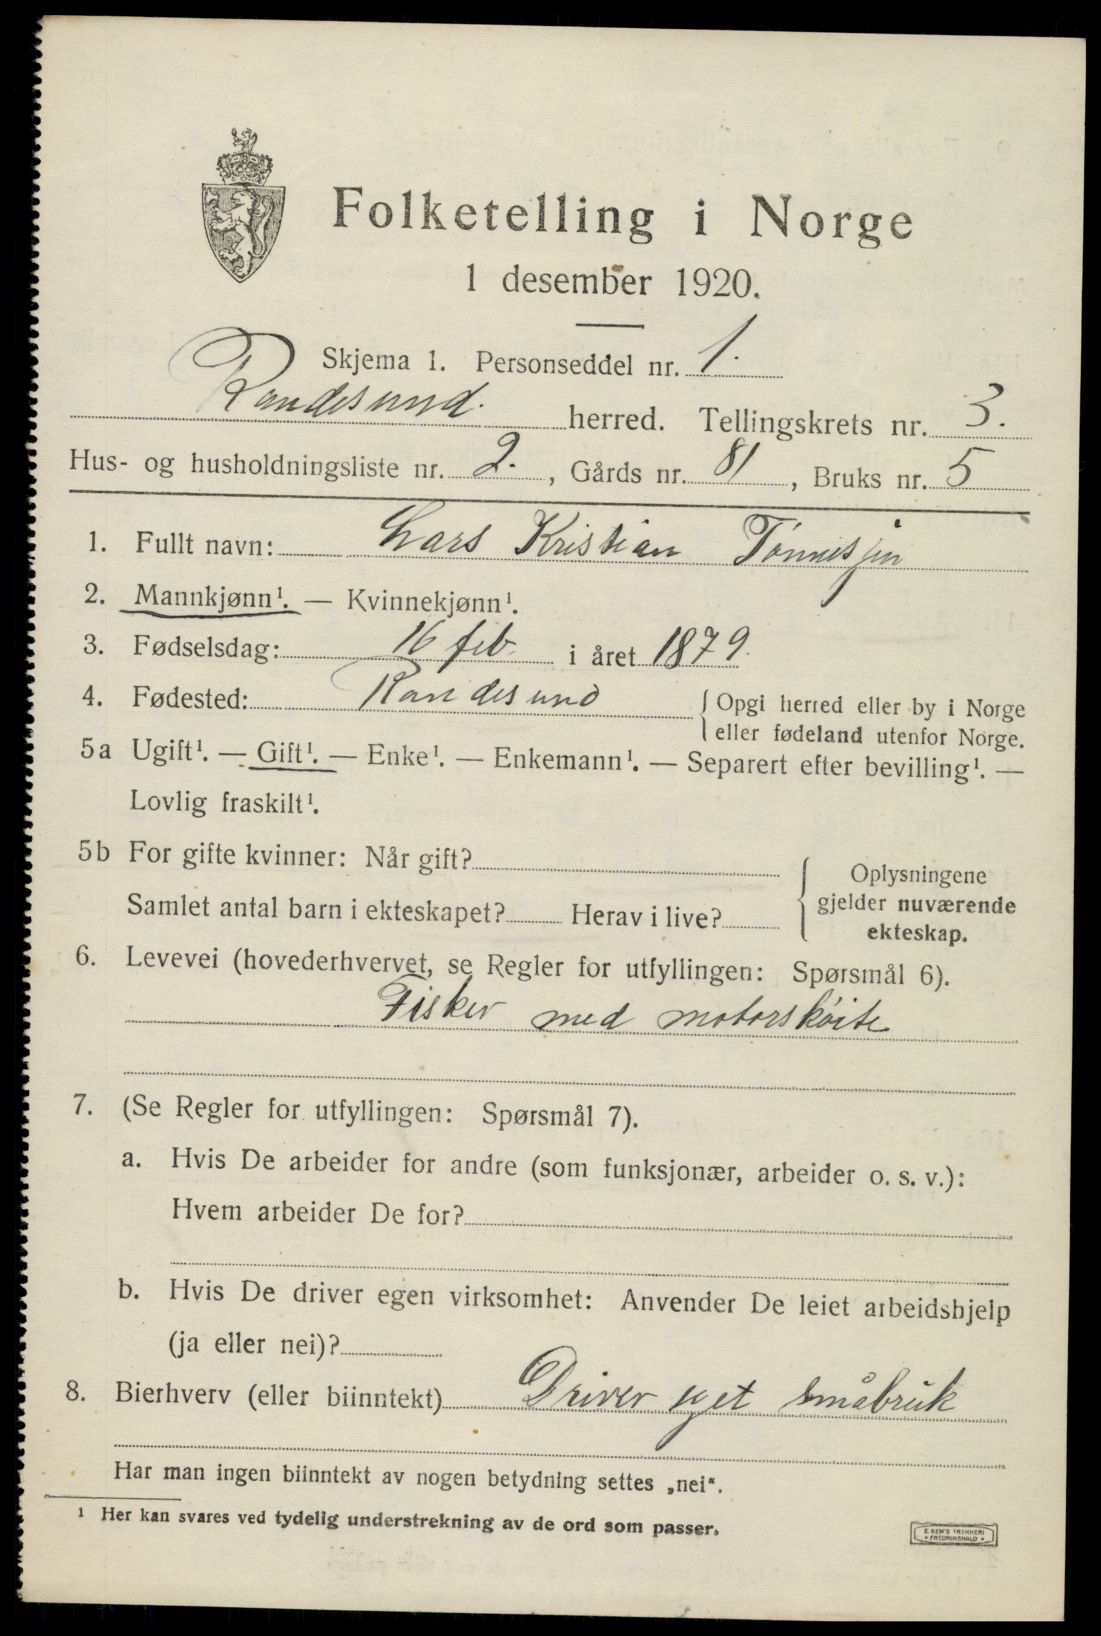 Folketelling i Norge
1 desember 1920.
Skjema 1. Personseddel nr. 1.
Randesund. herred. Tellingskrets nr. 3.
Hus- og husholdningsliste nr. 2. , Gårds nr. 81 , Bruks nr. 5
1. Fullt navn: Lars Kristian Tönnesjen
2. Mannkjønn¹. — Kvinnekjønn¹.
3. Fødselsdag: 16 feb. i året 1879.
4. Fødested: Randesund { Opgi herred eller by i Norge
eller fødeland utenfor Norge.
5a Ugift¹. — Gift¹. — Enke¹. — Enkemann¹. — Separert efter bevilling¹. —
Lovlig fraskilt¹.
5b For gifte kvinner: Når gift?
Samlet antal barn i ekteskapet? Herav i live?
{ Oplysningene
gjelder nuværende
ekteskap.
6. Levevei (hovederhvervet, se Regler for utfyllingen: Spørsmål 6).
Fisker med motorskóite
7. (Se Regler for utfyllingen: Spørsmål 7).
a. Hvis De arbeider for andre (som funksjonær, arbeider o. s. v.):
Hvem arbeider De for?
b. Hvis De driver egen virksomhet: Anvender De leiet arbeidshjelp
(ja eller nei)?
8. Bierhverv (eller biinntekt) Driver eget småbruk
Har man ingen biinntekt av nogen betydning settes „nei“.
¹ Her kan svares ved tydelig understrekning av de ord som passer.
E. SEM'S TRYKKERI
• FREDRIKSHALD •